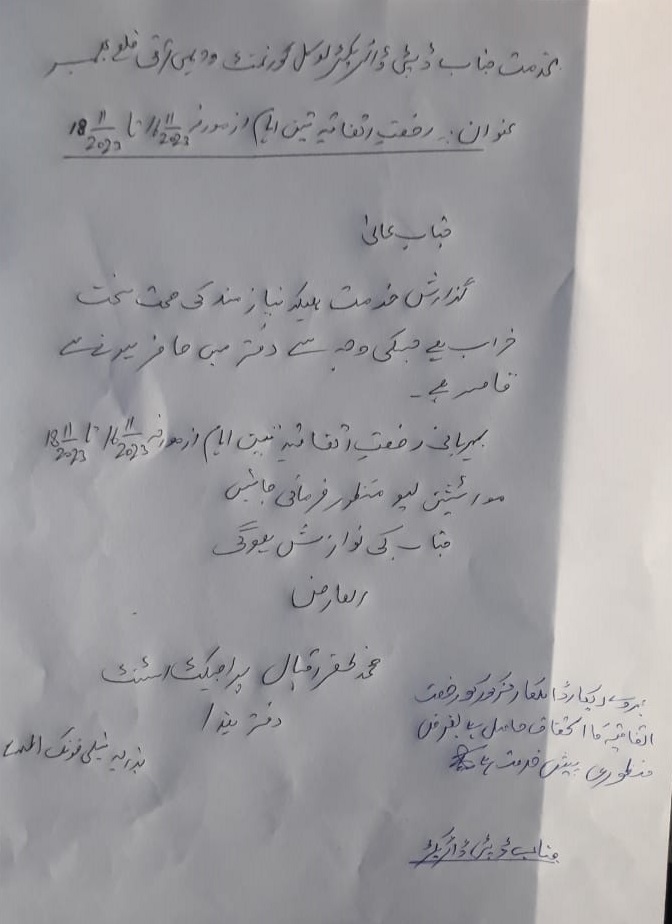 بخدمت جناب ڈپٹی ڈائریکٹر لوکل گورنمنٹ و دیہی ترقی ضلع بھمبر
عنوان :۔ رخصت اتفاقیہ تین ایام از مورخہ 16/11/2023 تا 18/11/2023
جناب عالی
گذارش خدمت ہیکہ نیاز مند کی صحت سخت
خراب ہے جسکی وجہ سے دفتر میں حاضر ہونے سے
قاصر ہے۔
مہربانی رخصت اتفاقیہ تین ایام از مورخہ 16/11/2023 تا 18/11/2023
معہ اسٹیشن لیو منظور فرمائی جائیں
جناب کی نوازش ہوگی
العارض
محمد ظفر اقبال پراجیکٹ اسسٹنٹ
دفتر ہذا
بذریہ ٹیلی فونک
بروے ریکارڈ اہلکار مذکور کو رخصت
اتفاقیہ کا استحقاق حاصل ہے بغرض
منظوری پیش خدمت ہے
جناب ڈپٹی ڈائریکٹر